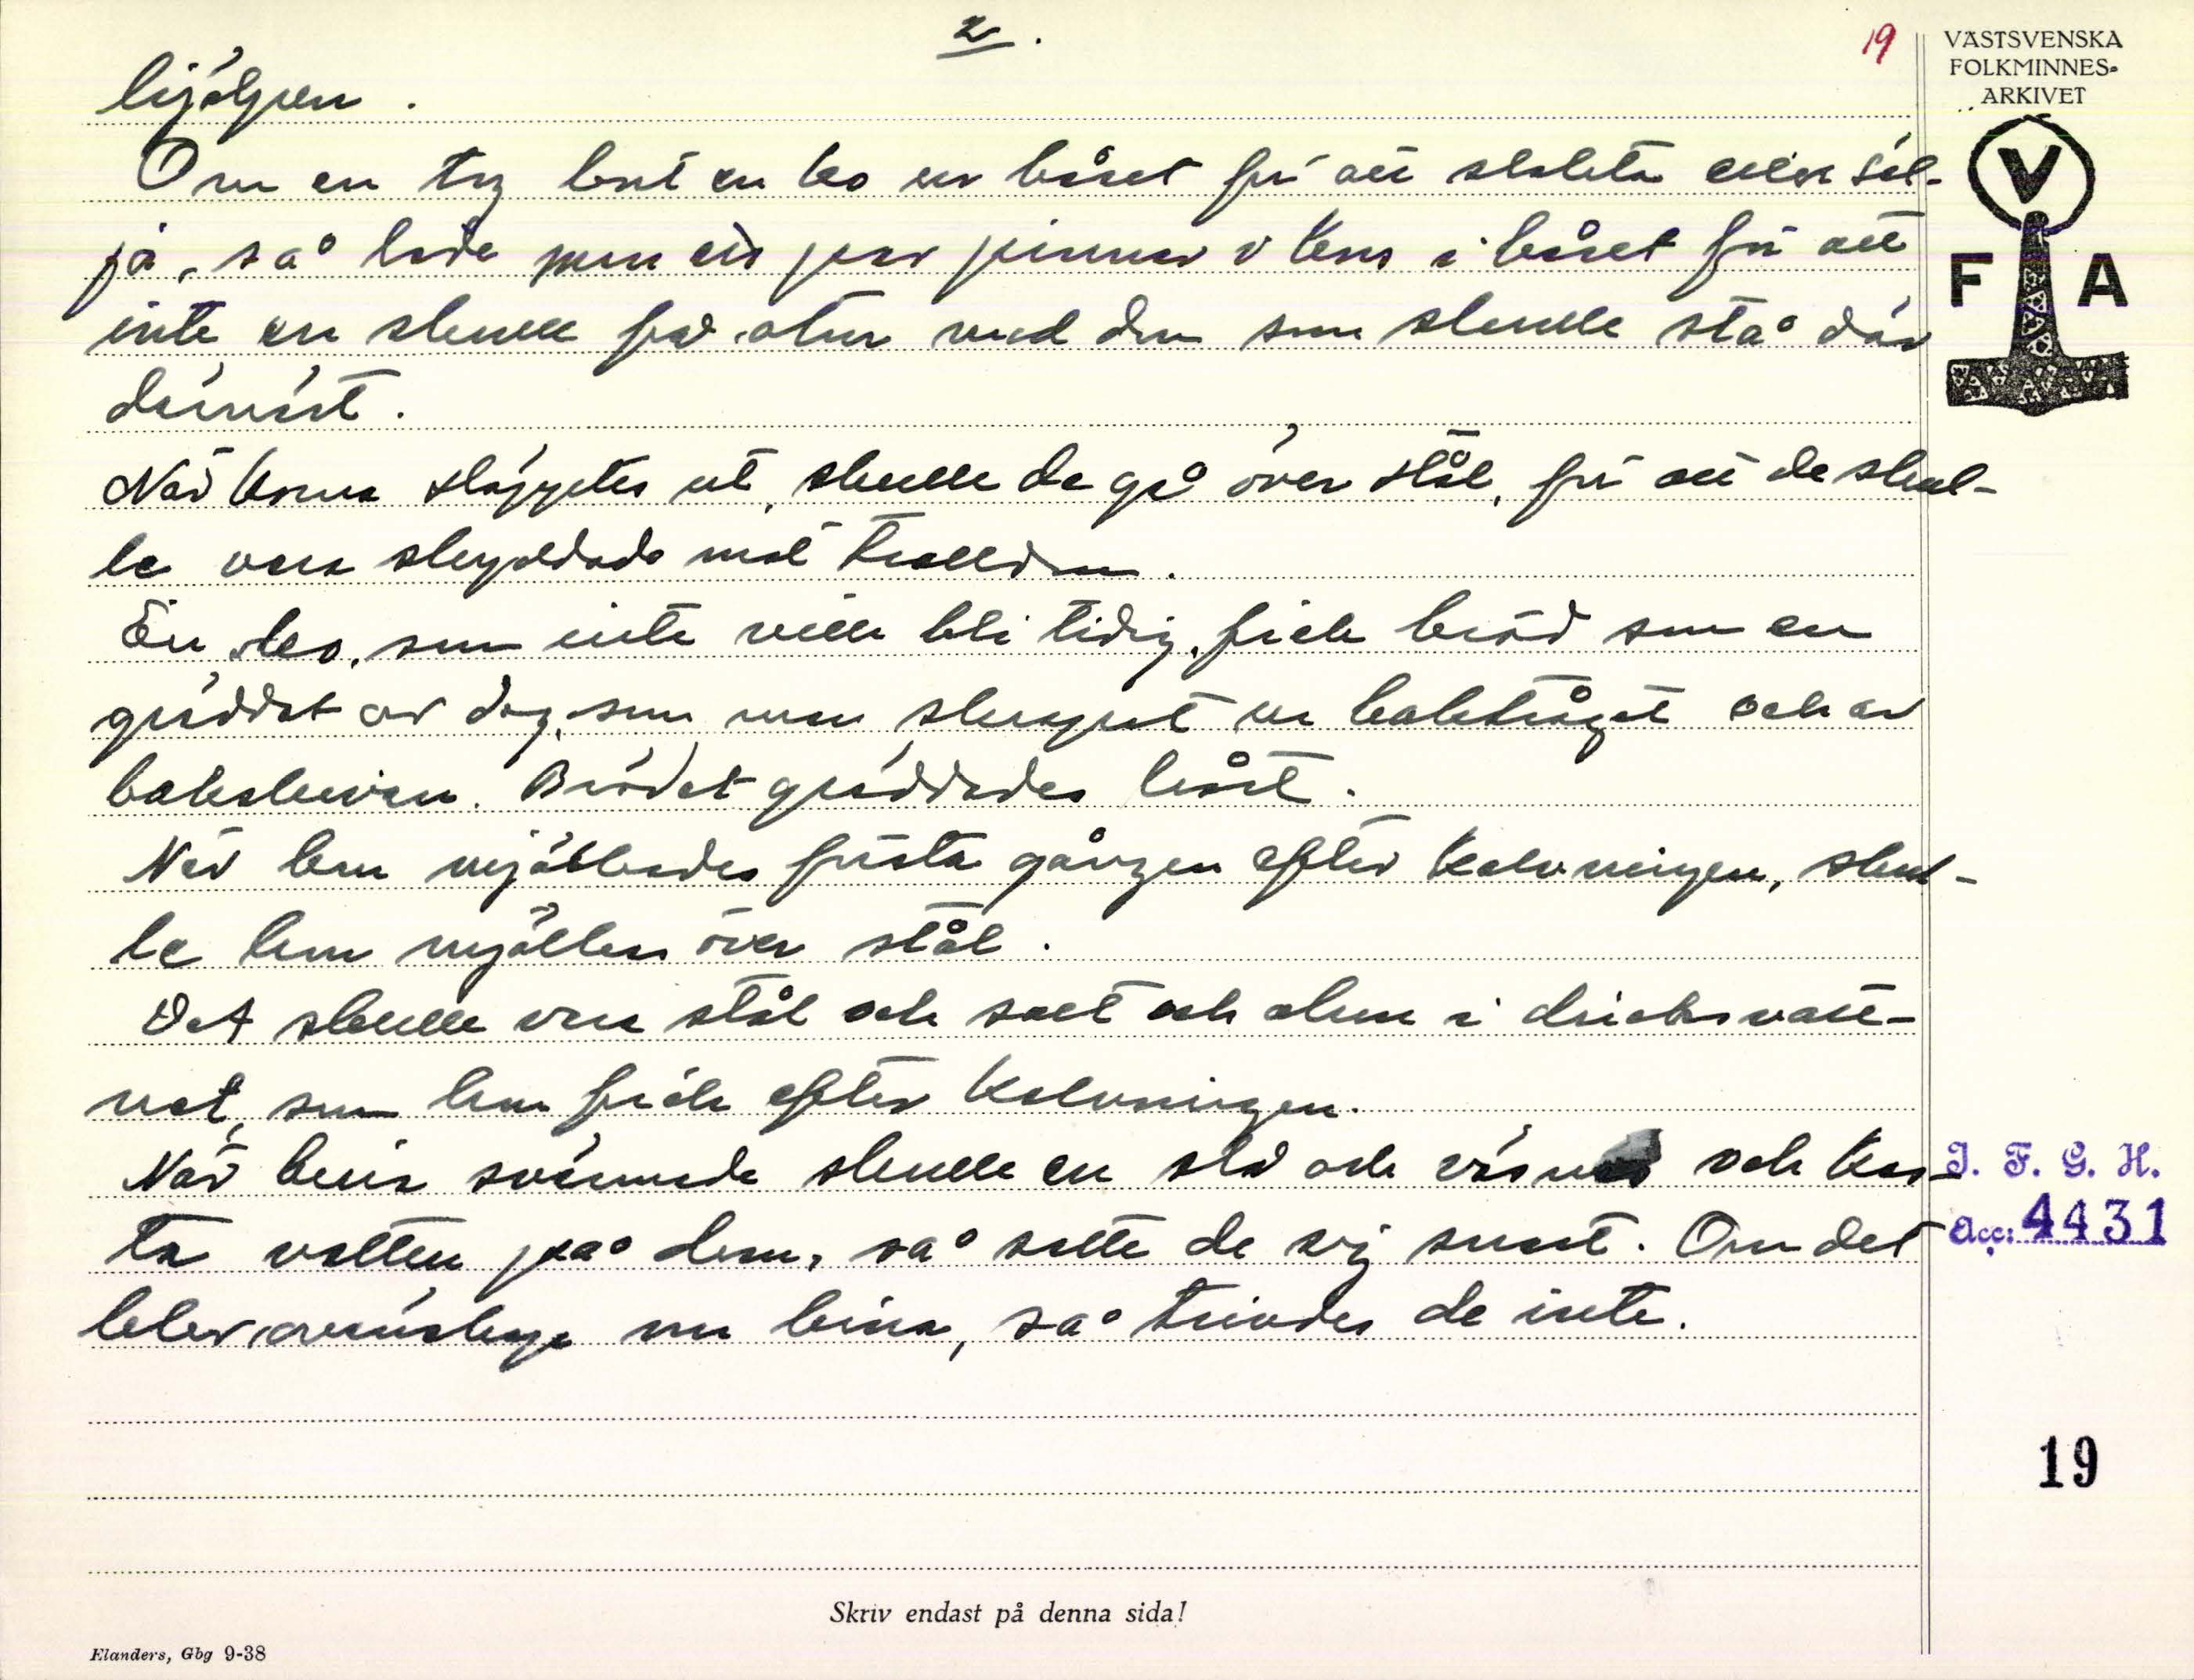 2.
19
VÄSTSVENSKA
FOLKMINNES-
ARKIVET
V
F A
hjälpen.
Om en tog bort en ko ur båset för att slakta eller säl-
ja, så lade man ett par pinnar i kors i båset för att
inte en skulle få otur med den som skulle stå där
därnäst.
När korna släpptes ut, skulle de gå över stål, för att de skul-
le vara skyddade mot trolldom.
En ko, som inte ville bli tidig, fick bröd som en
gräddat av deg, som man skrapat ur baktråget och av
bakskivan. Brödet gräddades hårt.
När kon mjölkades första gången efter kalvningen, skul-
le hon mjölkas över stål.
Det skulle vara stål och salt och alun i dricksvatt-
net, som kon fick efter kalvningen.
När bina svärmade skulle en slå och väsnas och kas-
ta vatten på dem, så satte de sig snart. Om det
blev avundsjuka om bina, så trivdes de inte.
I. F. G. H.
Acc: 4431
19
Skriv endast på denna sida!
Elanders, Gbg 9-38